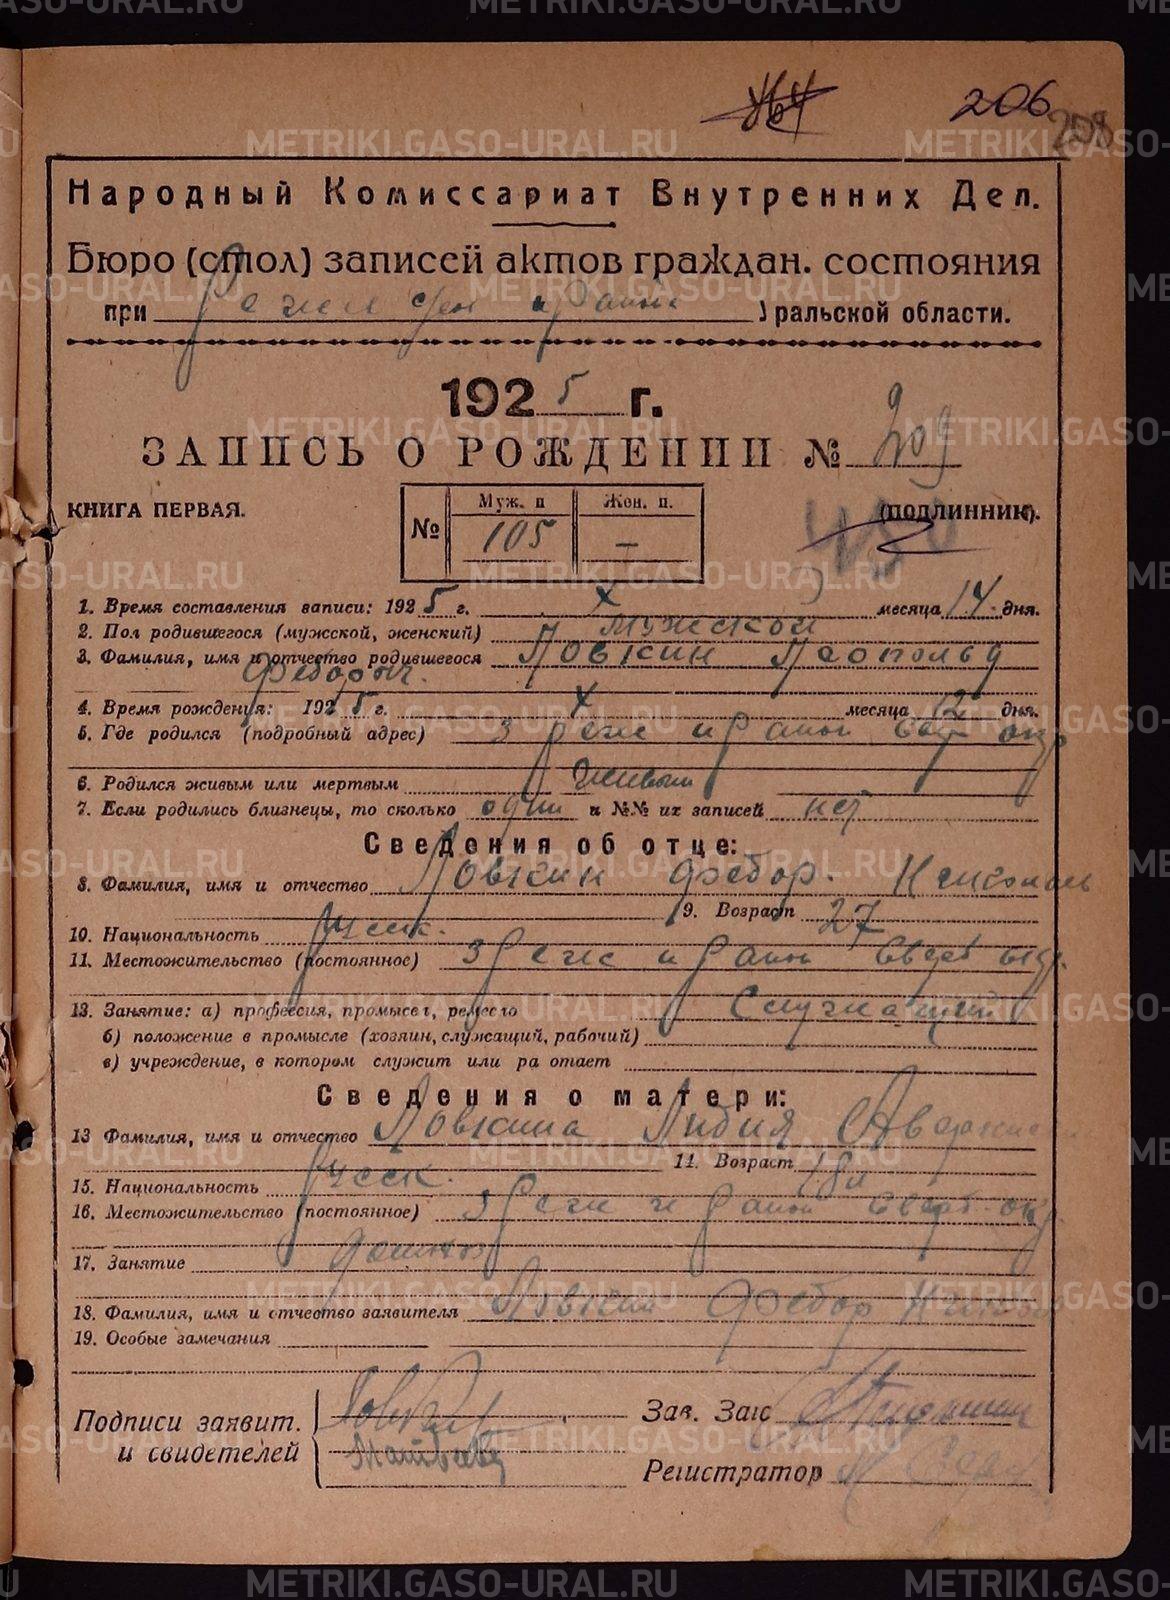 164 206 208
Народный Комиссариат Внутренних Дел.
Бюро (стол) записей актов граждан. состояния
при Реже ральской области.
192 5 г.
ЗАПИСЬ О РОЖДЕНИИ № 209
КНИГА ПЕРВАЯ. (ПОДЛИННИК).
№ Муж. п Жен. п.
105 —
1. Время составления записи: 192 5 г. X месяца 14 дня.
2. Пол родившегося (мужсской, женский) мужской
3. Фамилия, имя и отчество родившегося Ловкин Леопольд
Федорыч.
4. Время рождения: 192 5 г. X месяца 12 дня.
5. Где родился (подробный адрес) 3 Реже район Свер окр
6. Родился живым или мертвым живым
7. Если родились близнецы, то сколько один и №№ их записей нет
Сведения об отце:
8. Фамилия, имя и отчество Ловкин Федор.
9. Возраст 27
10. Национальность Русск.
11. Местожительство (постоянное) 3 Реже район Сверд окр.
12. Занятие: а) профессия, промысел, ремесло Служащий
б) положение в промысле (хозяин, служащий, рабочий)
в) учреждение, в котором служит или ра отает
Сведения о матери:
13 Фамилия, имя и отчество Ловкина Лидия
14. Возраст 18 л
15. Национальность Русск.
16. Местожительство (постоянное) 3 Реже район Сверд. окр.
17. Занятие
18. Фамилия, имя и отчество заявителя Ловкин Федор
19. Особые замечания
Подписи заявит. Зав. Загс
и свидетелей Матвеева
Регистратор
METRIKI.GASO-URAL.RU